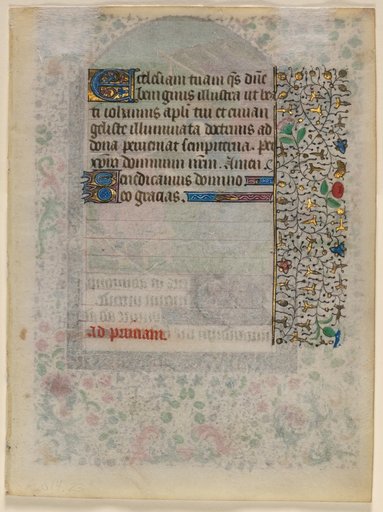 Ecclesiam tuam qs dne
benignus illustra ut bea
ti iohannis apli tui et euuan
geliste illuminata doctrinis ad
dona perueniat sempiterna. Per
xpm dominum nrm. Amen.
Benedicamus domino
Deo gracias.
Ad primam.